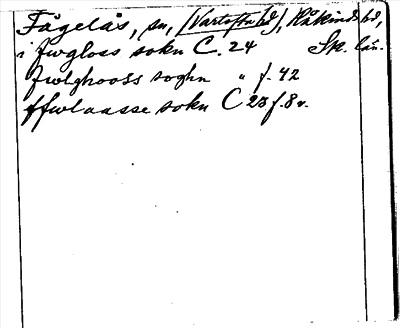 Fågelås, sn, (Vartofta hd), Kåkinds hd,
i fwgloss sokn C. 24 Sk. län.
fwlghooss soghn " f. 42
ffwlaasse sokn C 23 f. 8 v.